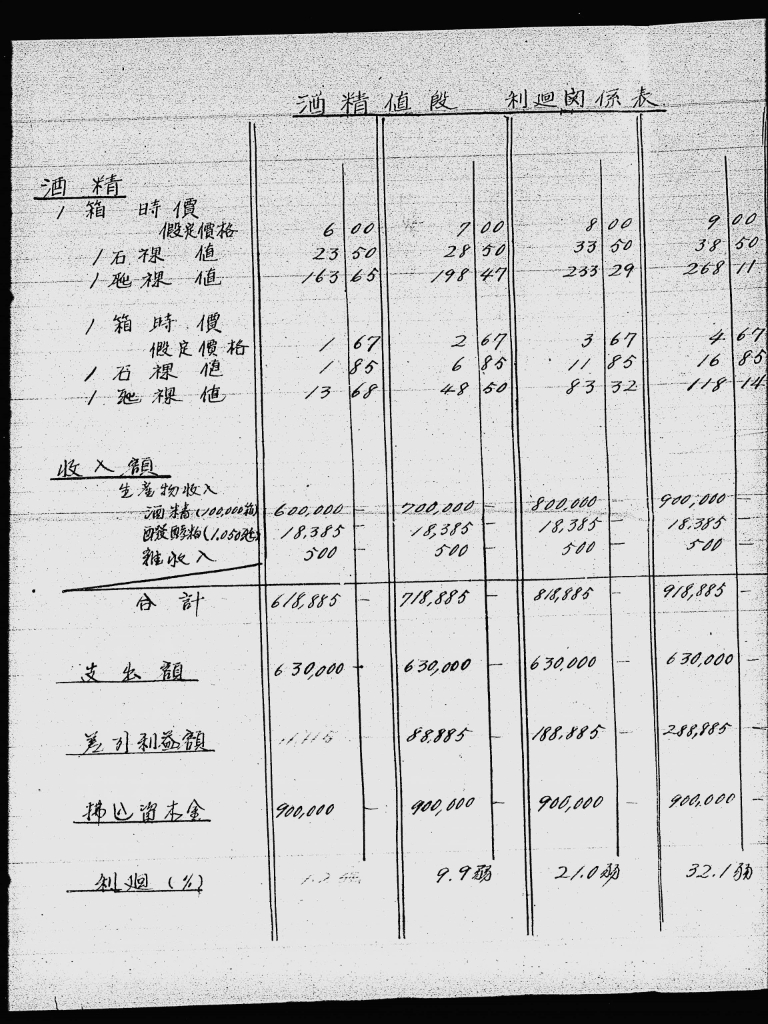 酒精値段 利廻関係表
酒精
1箱時價
假定價格 6 00 7 00 8 00 9 00
1石裸値 23 50 28 50 33 50 38 50
1瓲裸値 163 65 198 47 233 29 268 11
1箱時價
假定價格 1 67 2 67 3 67 4 67
1石裸値 1 85 6 85 11 85 16 85
1瓲裸値 13 68 48 50 83 32 118 14
收入額
生産物收入
酒精(100,000箱) 600,000 — 700,000 — 800,000 — 900,000 —
(1,050瓲) 18,385 — 18,385 — 18,385 — 18,385 —
雜收入 500 — 500 — 500 — 500 —
合計 618,885 — 718,885 — 818,885 — 918,885 —
支出額 630,000 — 630,000 — 630,000 — 630,000 —
差引利益額 11,115 88,885 — 188,885 — 288,885 —
拂込資本金 900,000 — 900,000 — 900,000 — 900,000 —
利廻(%) 9.9弱 21.0弱 32.1弱